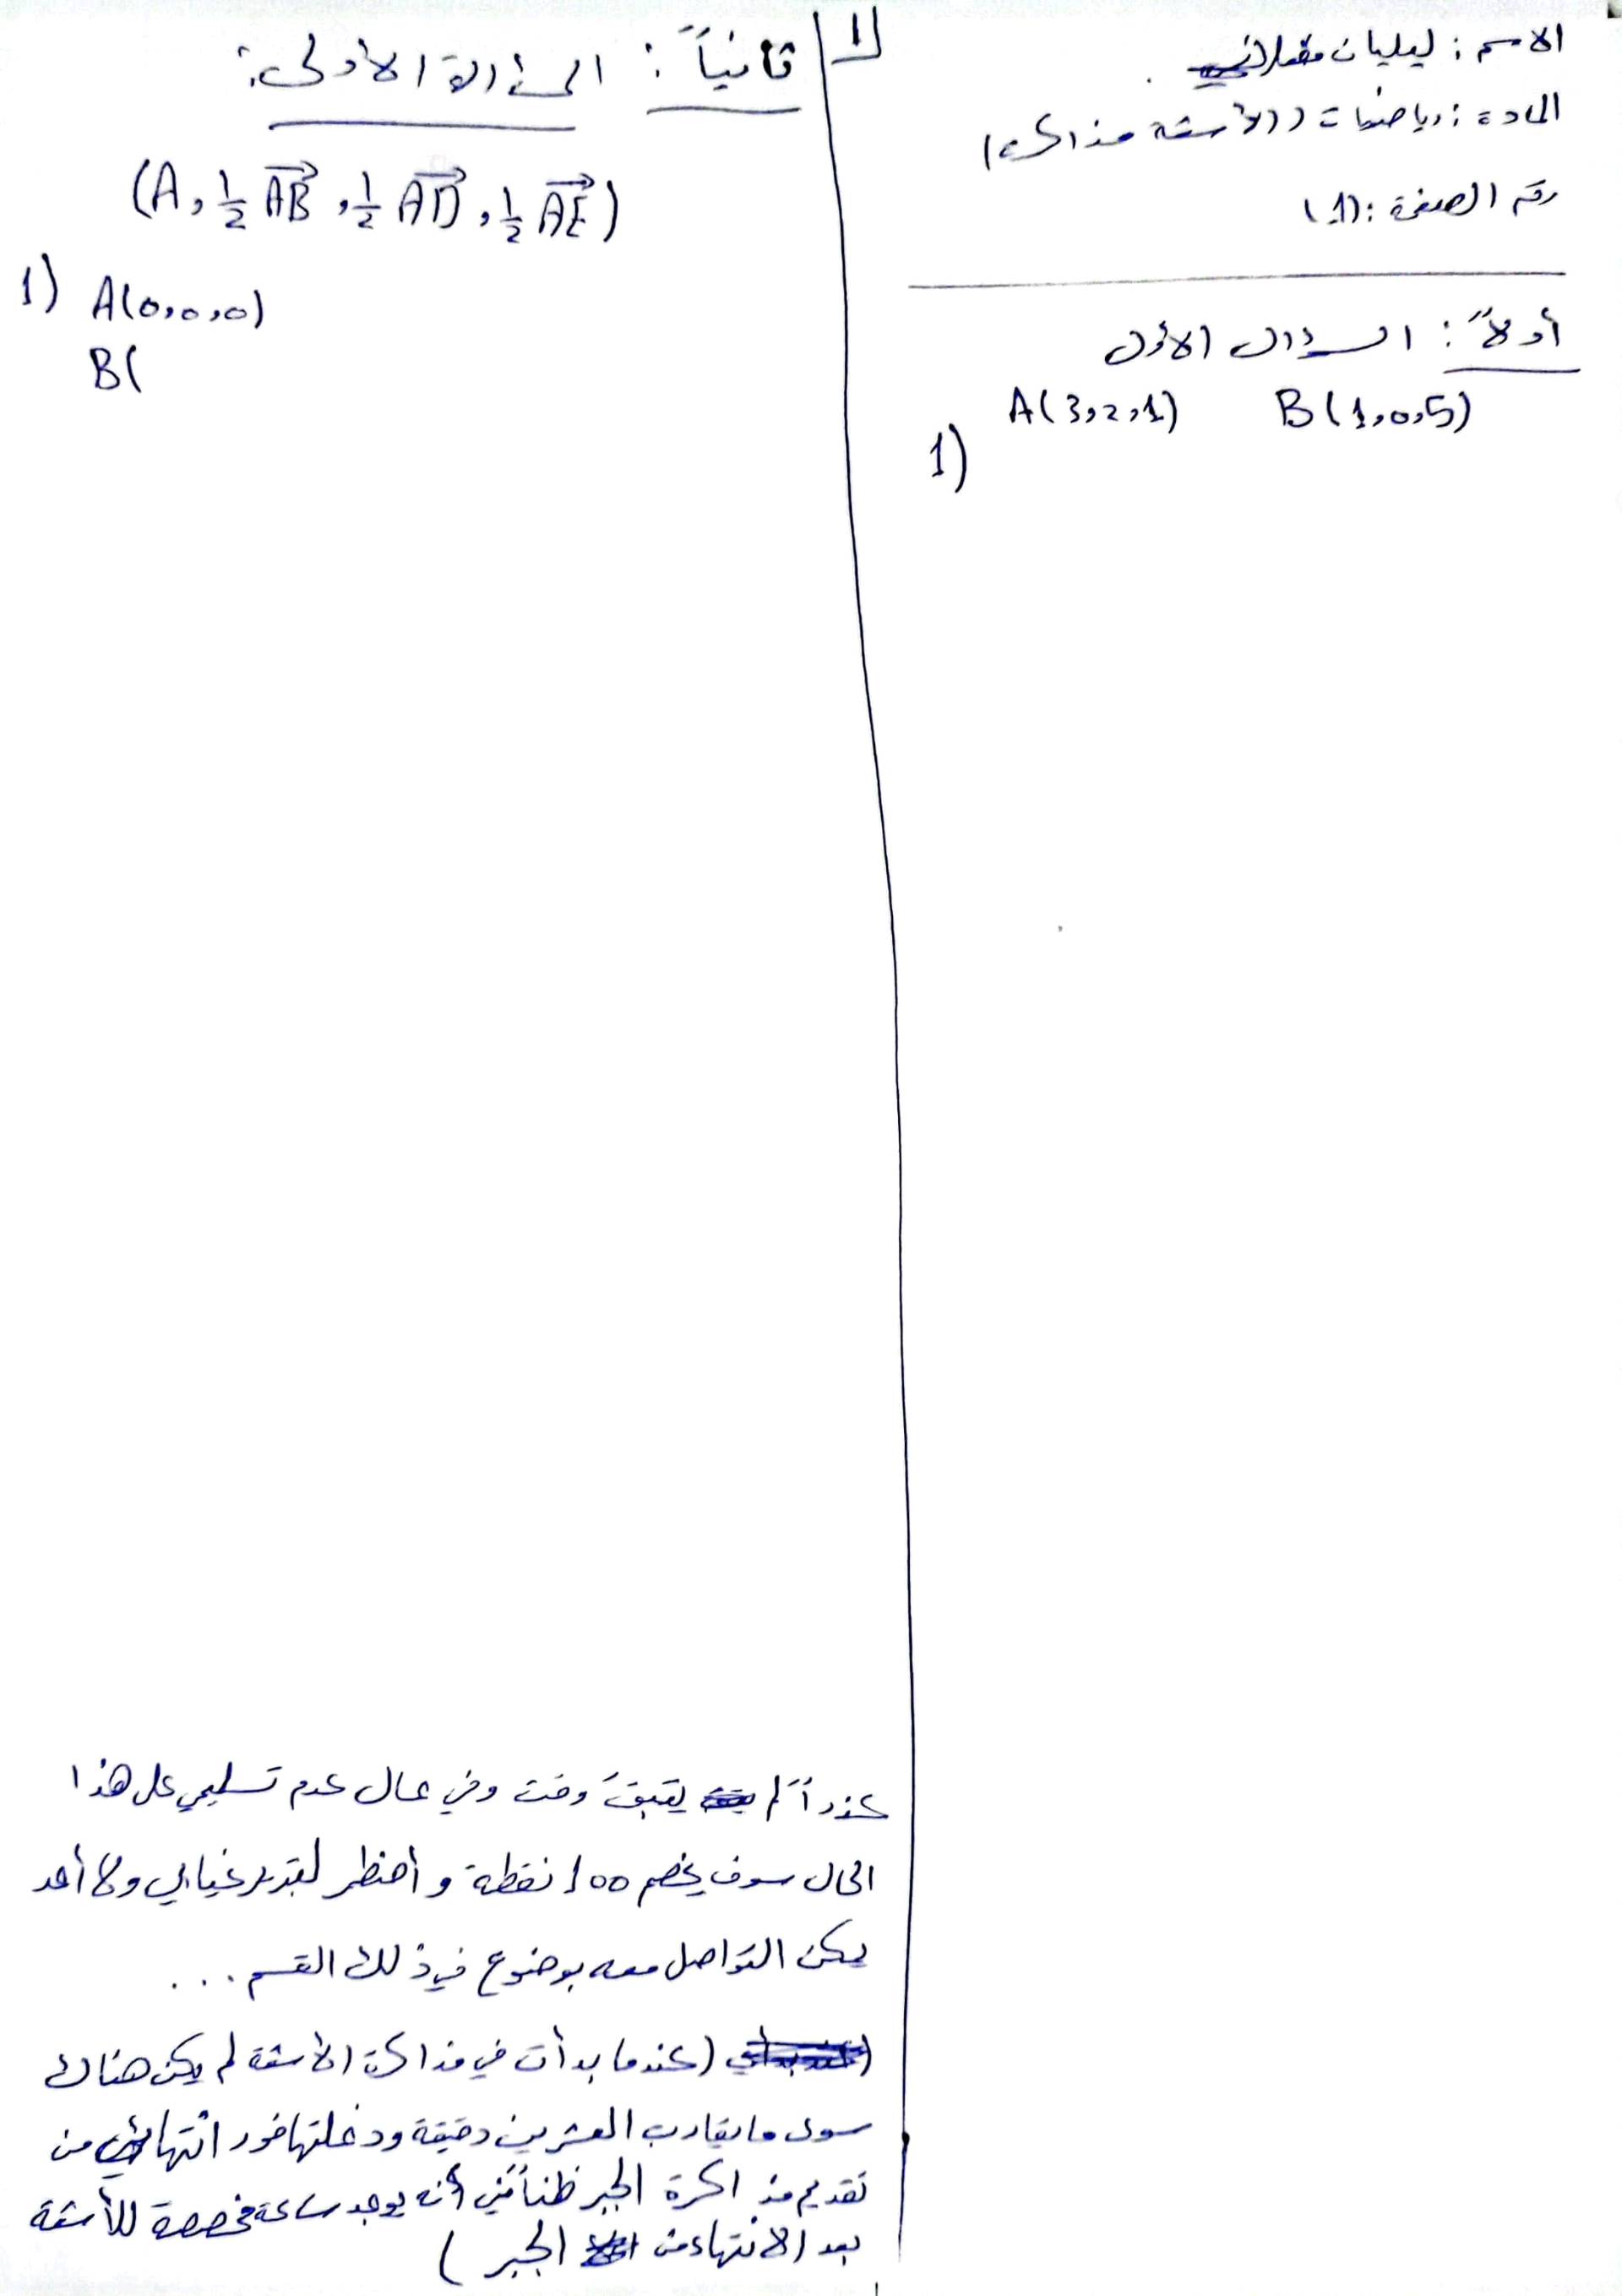 الاسم : ليليان
المادة : رياضيات (الأشعة مذاكرة)
رقم الصفحة : (1)
أولاً : السؤال الأول
A(3,2,1) B(1,0,5)
1)
1
ثانياً : المسألة الأولى :
(A, ½ AB, ½ AD, ½ AE)
1) A(0,0,0)
B(
عذراً لم يتبقَ وقت وفي حال عدم تسليمي على هذا
الحال سوف يخصم 100 نقطة وأضطر لتبرير غيابي ولا أحد
يمكن التواصل معه بوضوع في ذلك القسم ...
(عندما بدأت في مذاكرة الأشعة لم يكن هناك
سوى ما يقارب العشرين دقيقة ودخلتها فور انتهائي من
تقديم مذاكرة الجبر ظناً مني أنه يوجد ساعة مخصصة للأشعة
بعد الانتهاء من الجبر )